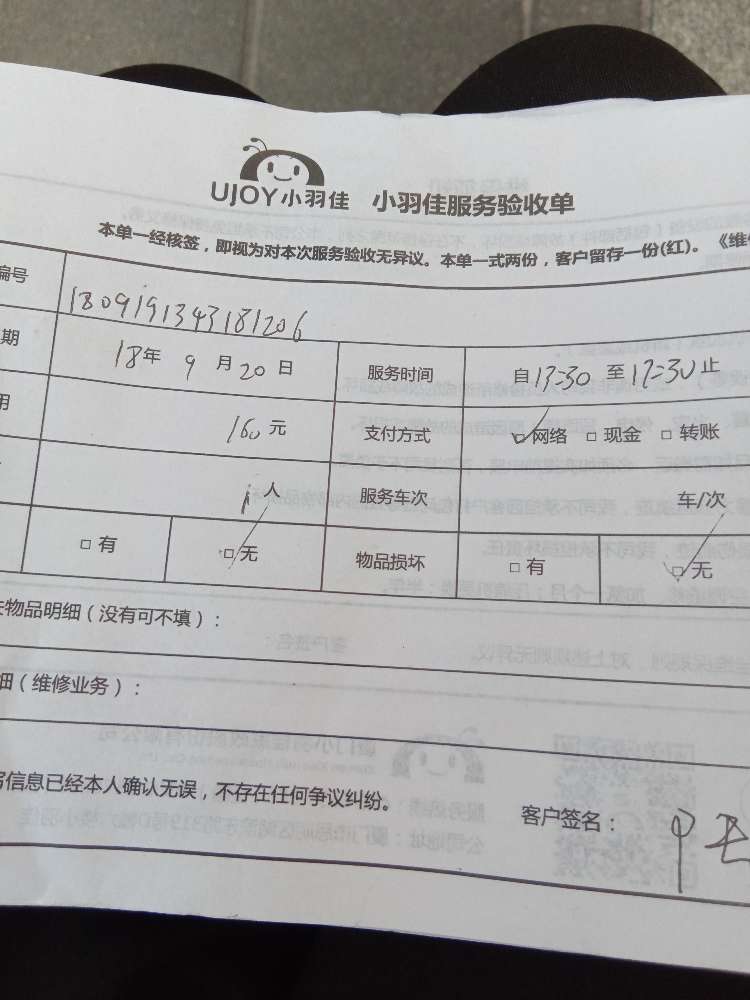 UJOY小羽佳 小羽佳服务验收单
本单一经核签，即视为对本次服务验收无异议。本单一式两份，客户留存一份(红)。《维
编号 1809191343181206
期 18年 9 月 20 日 服务时间 自 13-30 至 17-30 止
用 160 元 支付方式 网络 □ 现金 □ 转账
1 人 服务车次 车/次
□ 有 □ 无 物品损坏 □ 有 □ 无
物品明细（没有可不填）：
细（维修业务）：
信息已经本人确认无误，不存在任何争议纠纷。
客户签名：